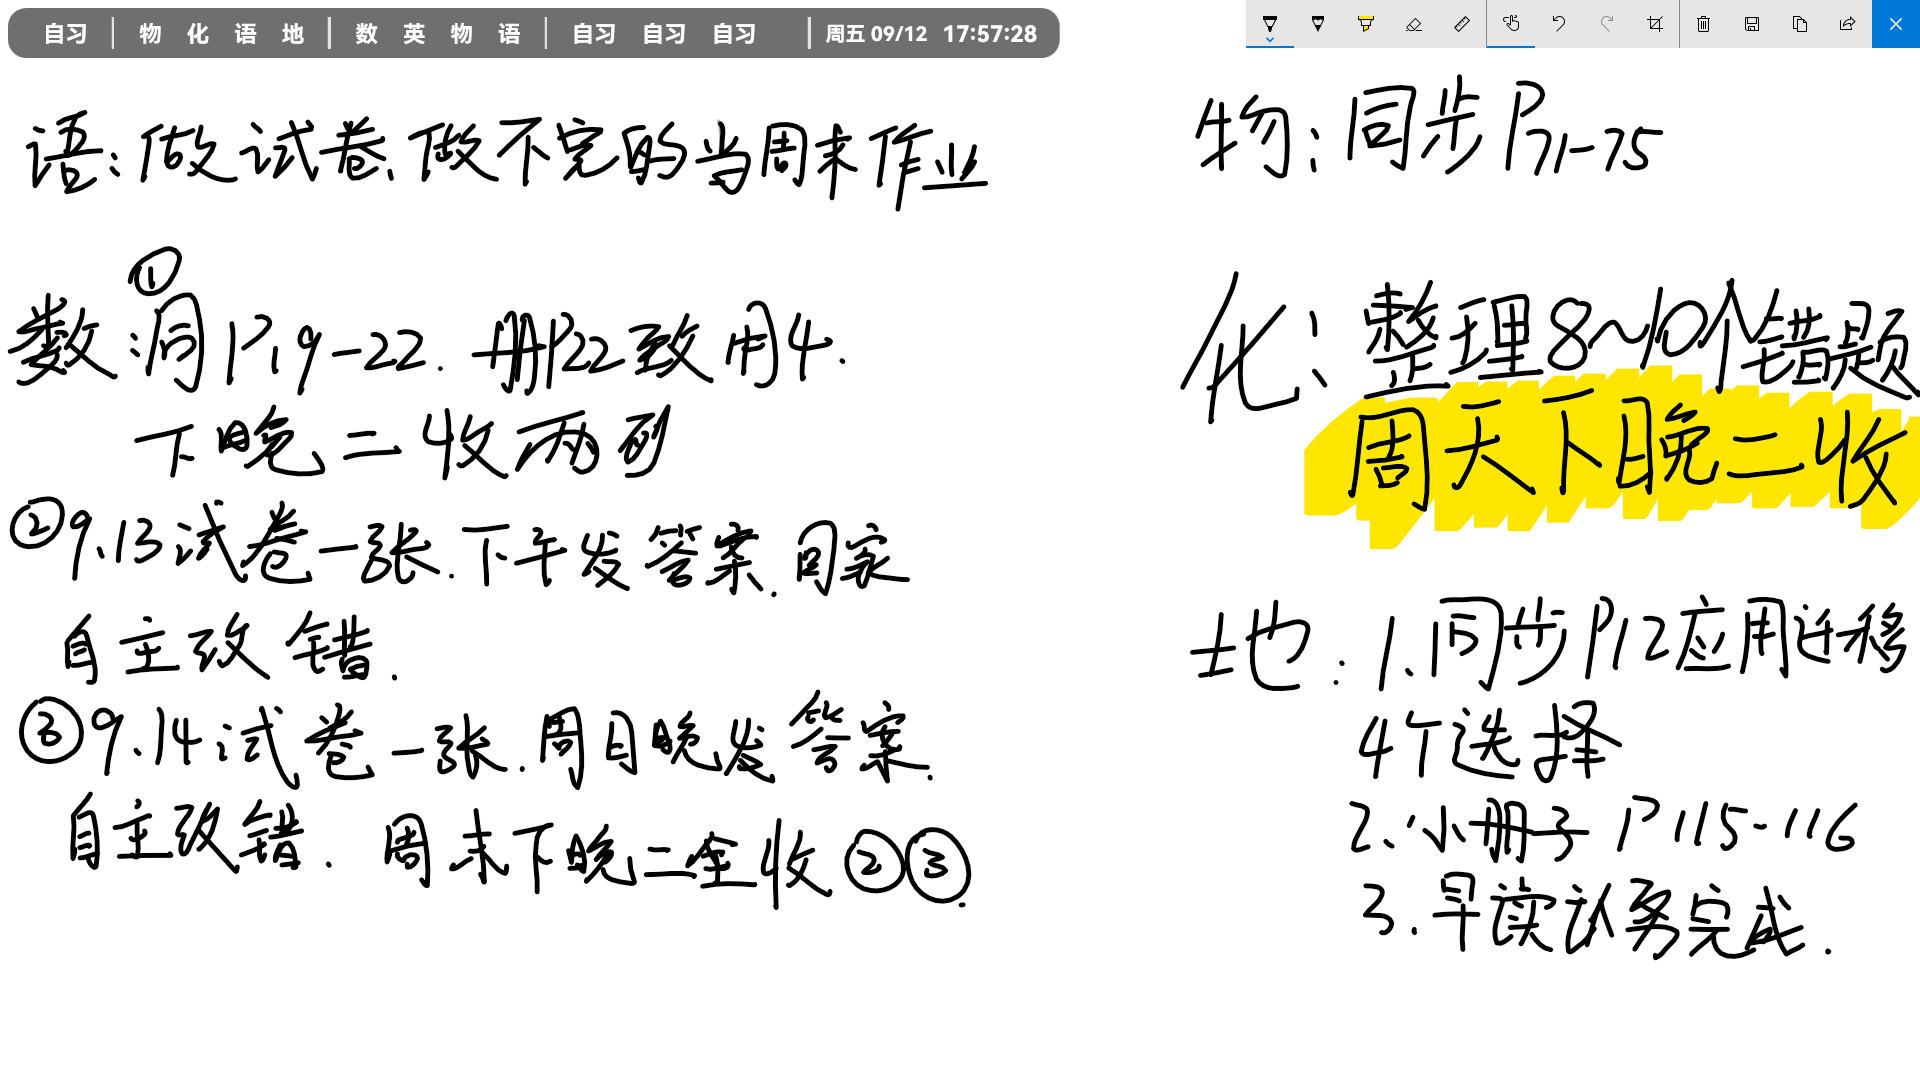 自习 | 物 化 语 地 | 数 英 物 语 | 自习 自习 自习 | 周五 09/12 17:57:28
语:做试卷、做不完的当周末作业
①
数:同P19-22. 册P22致用4.
下晚二收两列
②9.13试卷一张.下午发答案.回家
自主改错.
③9.14试卷一张.周日晚发答案.
自主改错. 周末下晚二全收②③.
物:同步P71-75
化:整理8~10个错题
周天下晚二收
地:1.同步P12应用迁移
4个选择
2.小册子P115-116
3.早读认务完成.